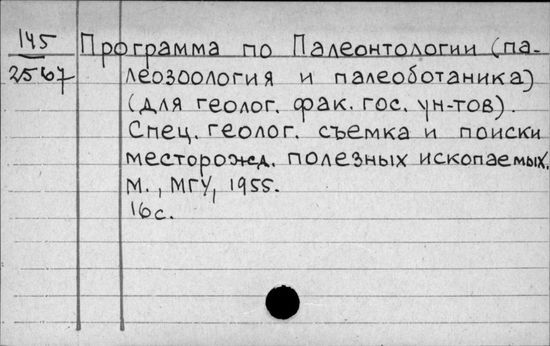 145 Программа по Палеонтологии (па-
2567 леозоология и палеоботаника)
(для геолог. фак. гос. ун-тов).
Спец. геолог. съемка и поиски
месторожд. полезных ископаемых.
М., МГУ, 1955.
16с.